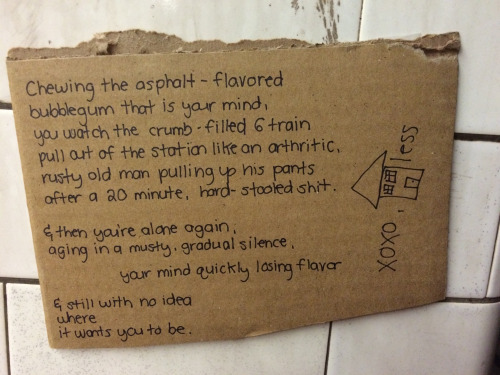 Chewing the asphalt-flavored
bubblegum that is your mind,
you watch the crumb-filled 6 train
pull out of the station like an arthritic,
rusty old man pulling up his pants
after a 20 minute, hard-stooled shit.
& then you're alone again,
aging in a musty, gradual silence,
your mind quickly losing flavor
& still with no idea
where
it wants you to be.
XOXO, less